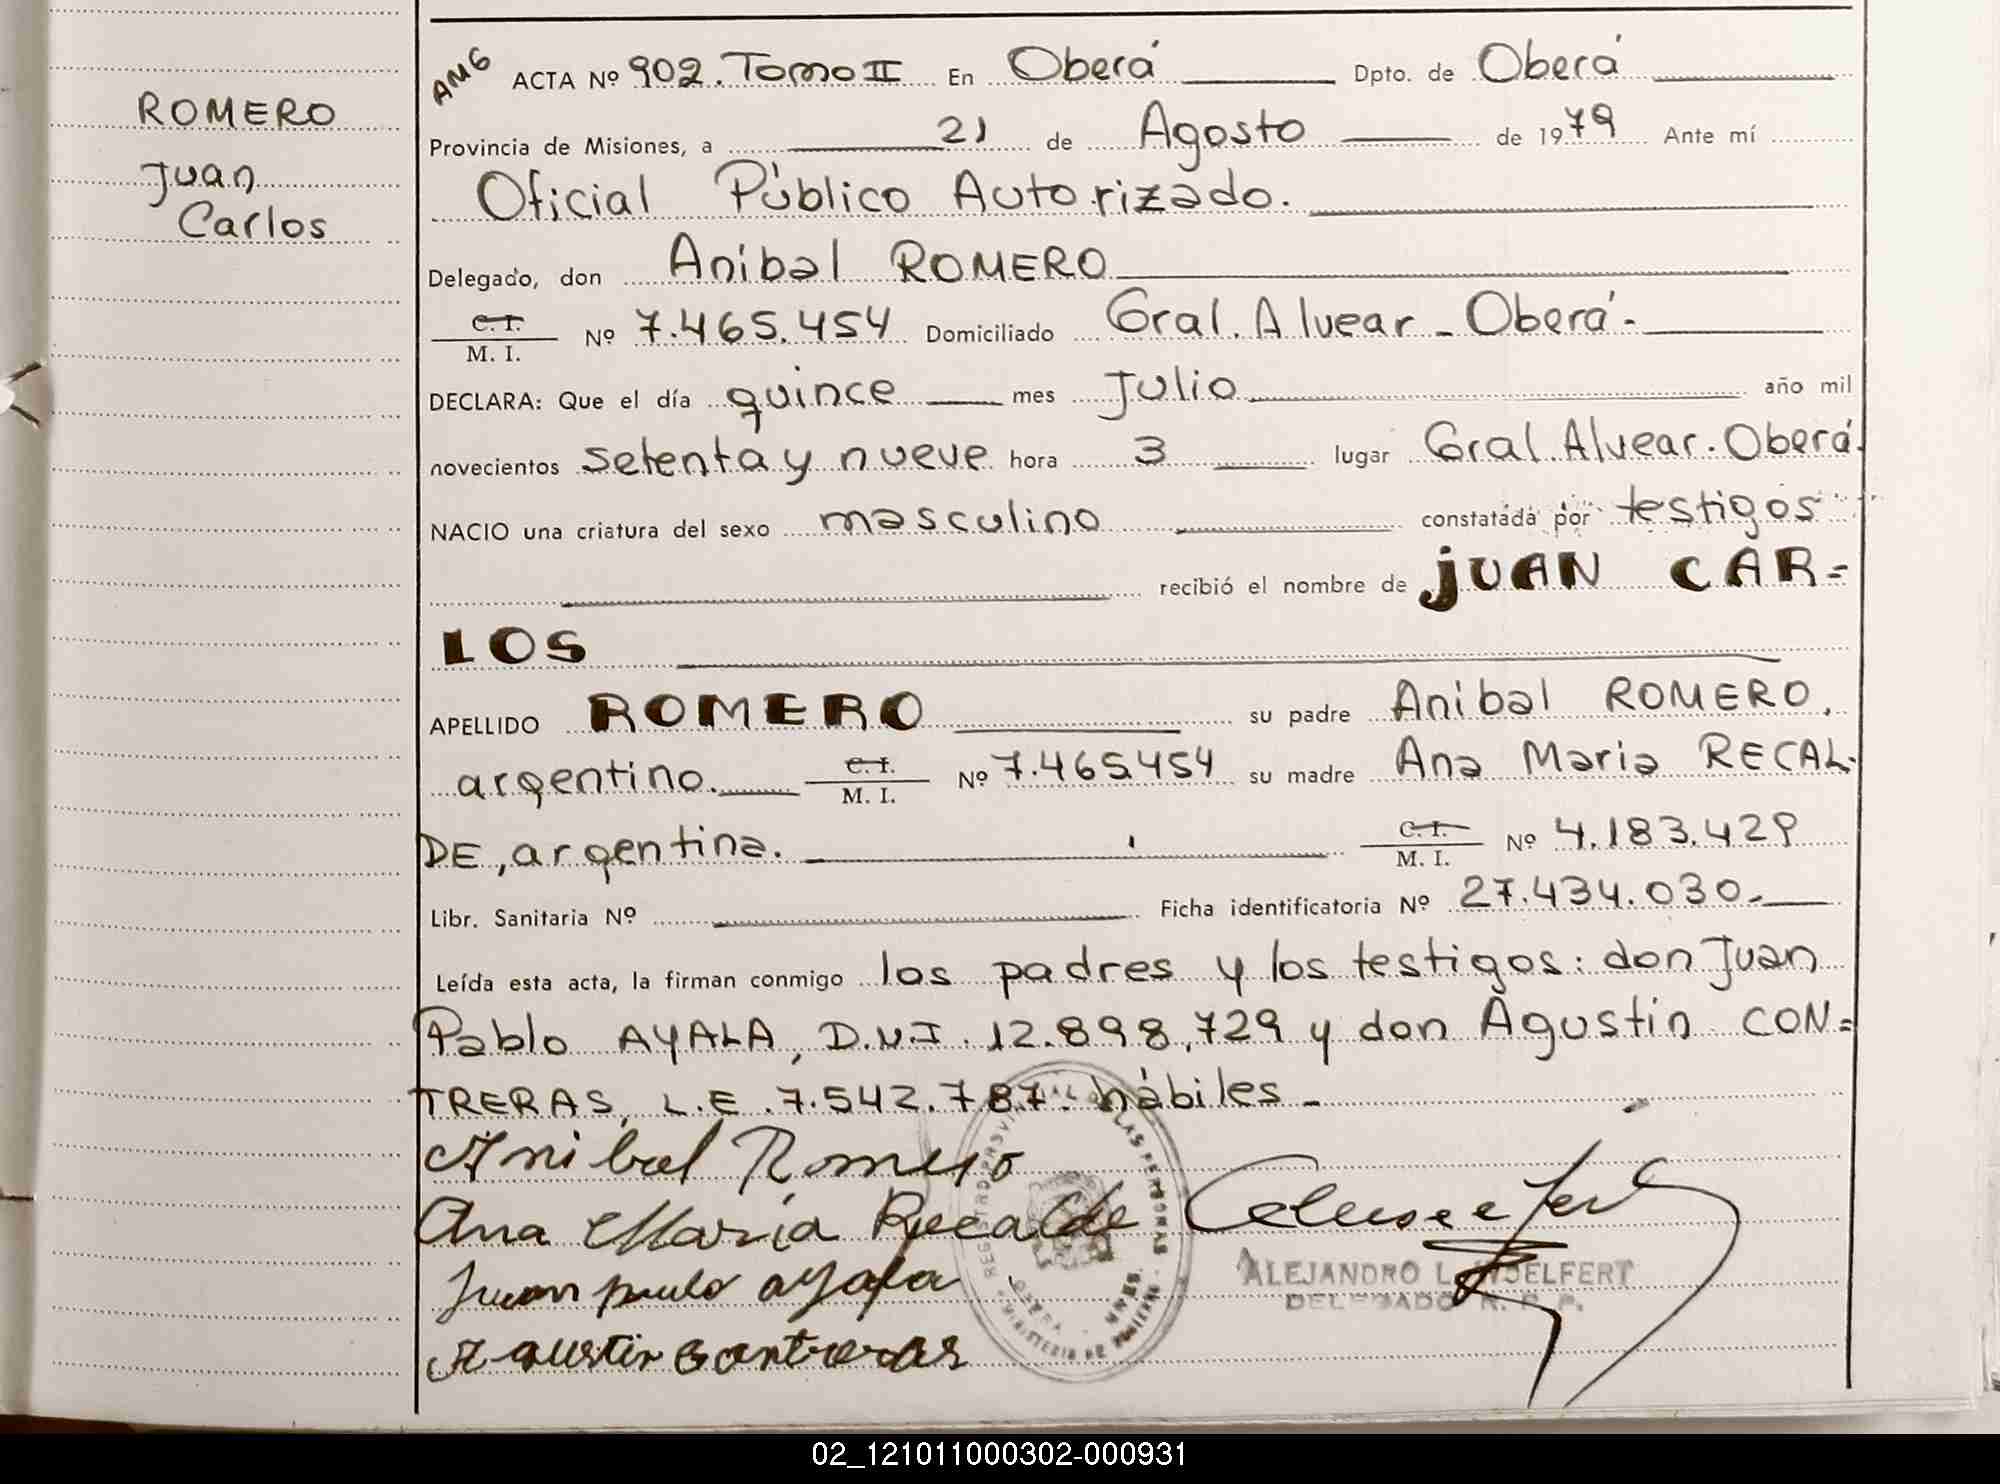 ROMERO
Juan
Carlos
AMG ACTA Nº 902. Tomo II En Oberá Dpto. de Oberá
Provincia de Misiones, a 21 de Agosto de 1979 Ante mí
Oficial Público Autorizado.
Delegado, don Anibal ROMERO
C. I.
M. I. Nº 7.465.454 Domiciliado Gral. Alvear - Oberá.-
DECLARA: Que el día quince mes Julio año mil
novecientos setenta y nueve hora 3 lugar Gral. Alvear. Oberá.
NACIO una criatura del sexo masculino constatada por testigos
recibió el nombre de JUAN CAR=
LOS
APELLIDO ROMERO su padre Anibal ROMERO,
argentino. C. I.
M. I. Nº 7.465.454 su madre Ana Maria RECAL-
DE, argentina. C. I.
M. I. Nº 4.183.429
Libr. Sanitaria Nº Ficha identificatoria Nº 27.434.030.-
Leída esta acta, la firman conmigo los padres y los testigos: don Juan
Pablo AYALA, D.N.I. 12.898.729 y don Agustin CON=
TRERAS, L.E. 7.542.787. hábiles.-
Anibal Romero
Ana Maria Recalde
Juan paulo ayala
Agustin Contreras
ALEJANDRO L. WOELFERT
DELEGADO R. P. P.
REGISTRO PROVINCIAL DE LAS PERSONAS
OBERA - MNES.
MINISTERIO DE GOBIERNO
02_121011000302-000931